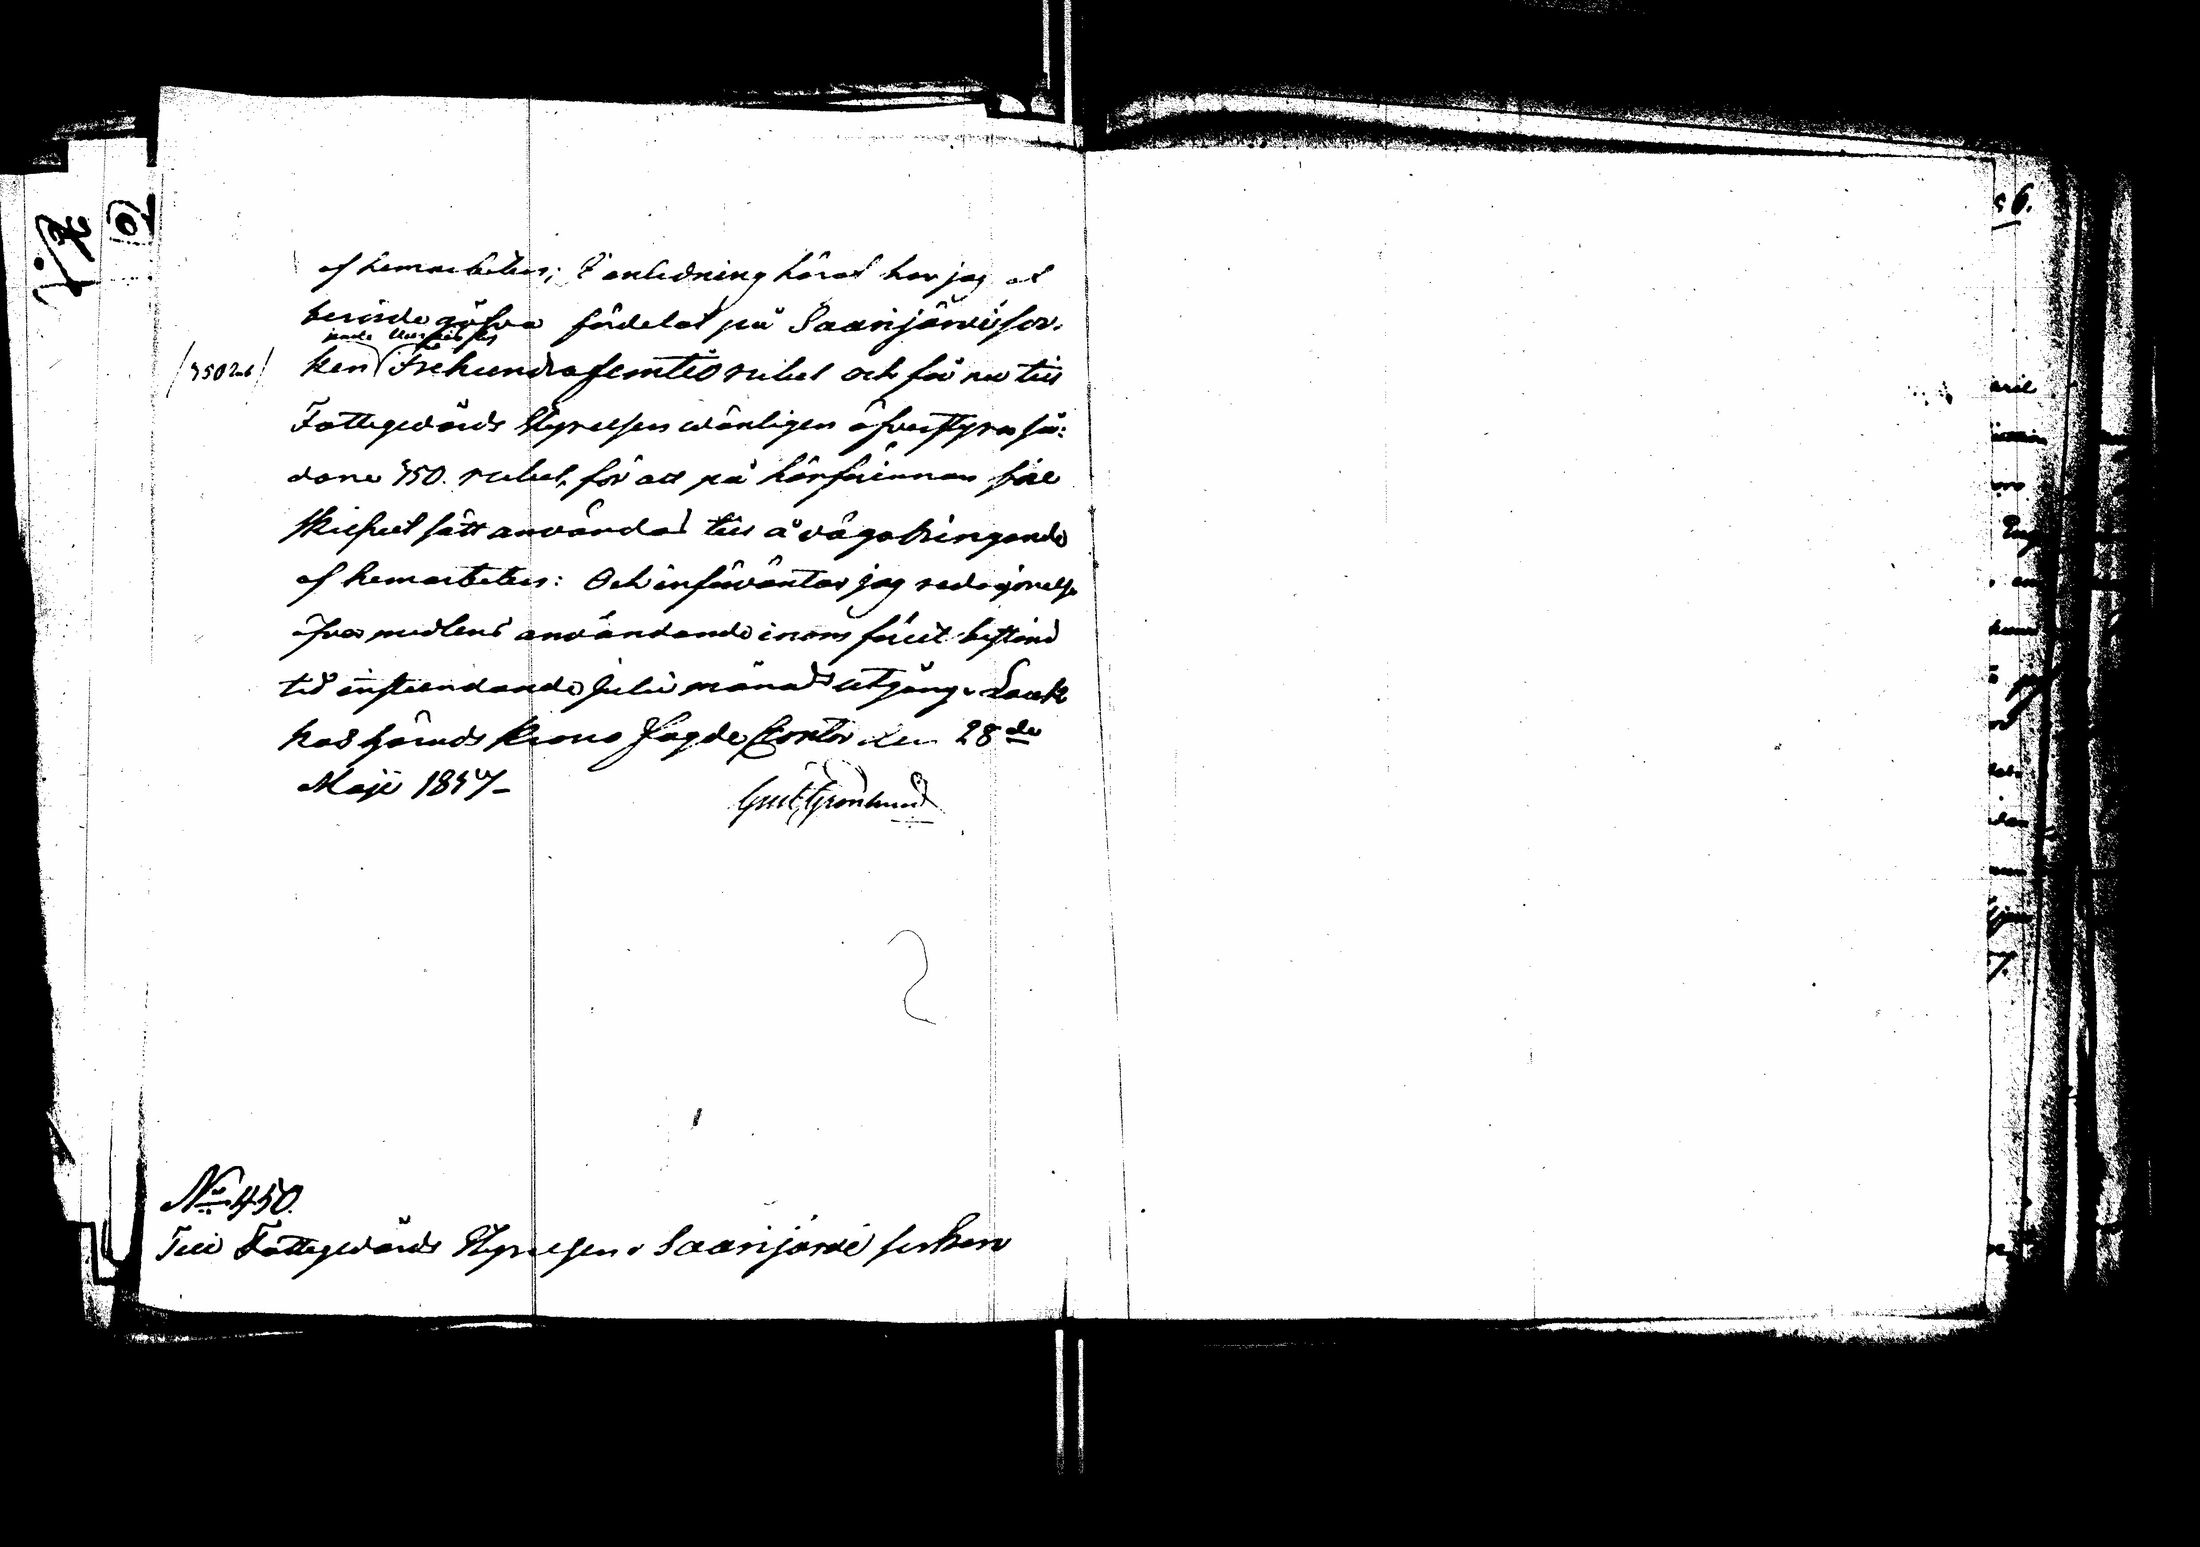 af hemarbeten; I anledning häraf har jag af
berörde gåfva fördelat på Saarijärvi sor-
/350 Rub/ ken Trehundrafemtio rubel och får nu till
Fattigvårds Styrelsen vänligen öfverstyra så-
dane 350. rubel, för att på härförinnan före
skrifvet sätt användas till å vägabringande
af hemarbeten: Och införväntar jag redogörelse
öfver medlens användande inom först bestämd
tid instundande Julii månads utgång. Lauk
kas härads Krono Fogde Contor den 28de
Maji 1857-
Gust Grönlund
No 450.
Till Fattigvårds Styrelsen i Saarijärvi socken